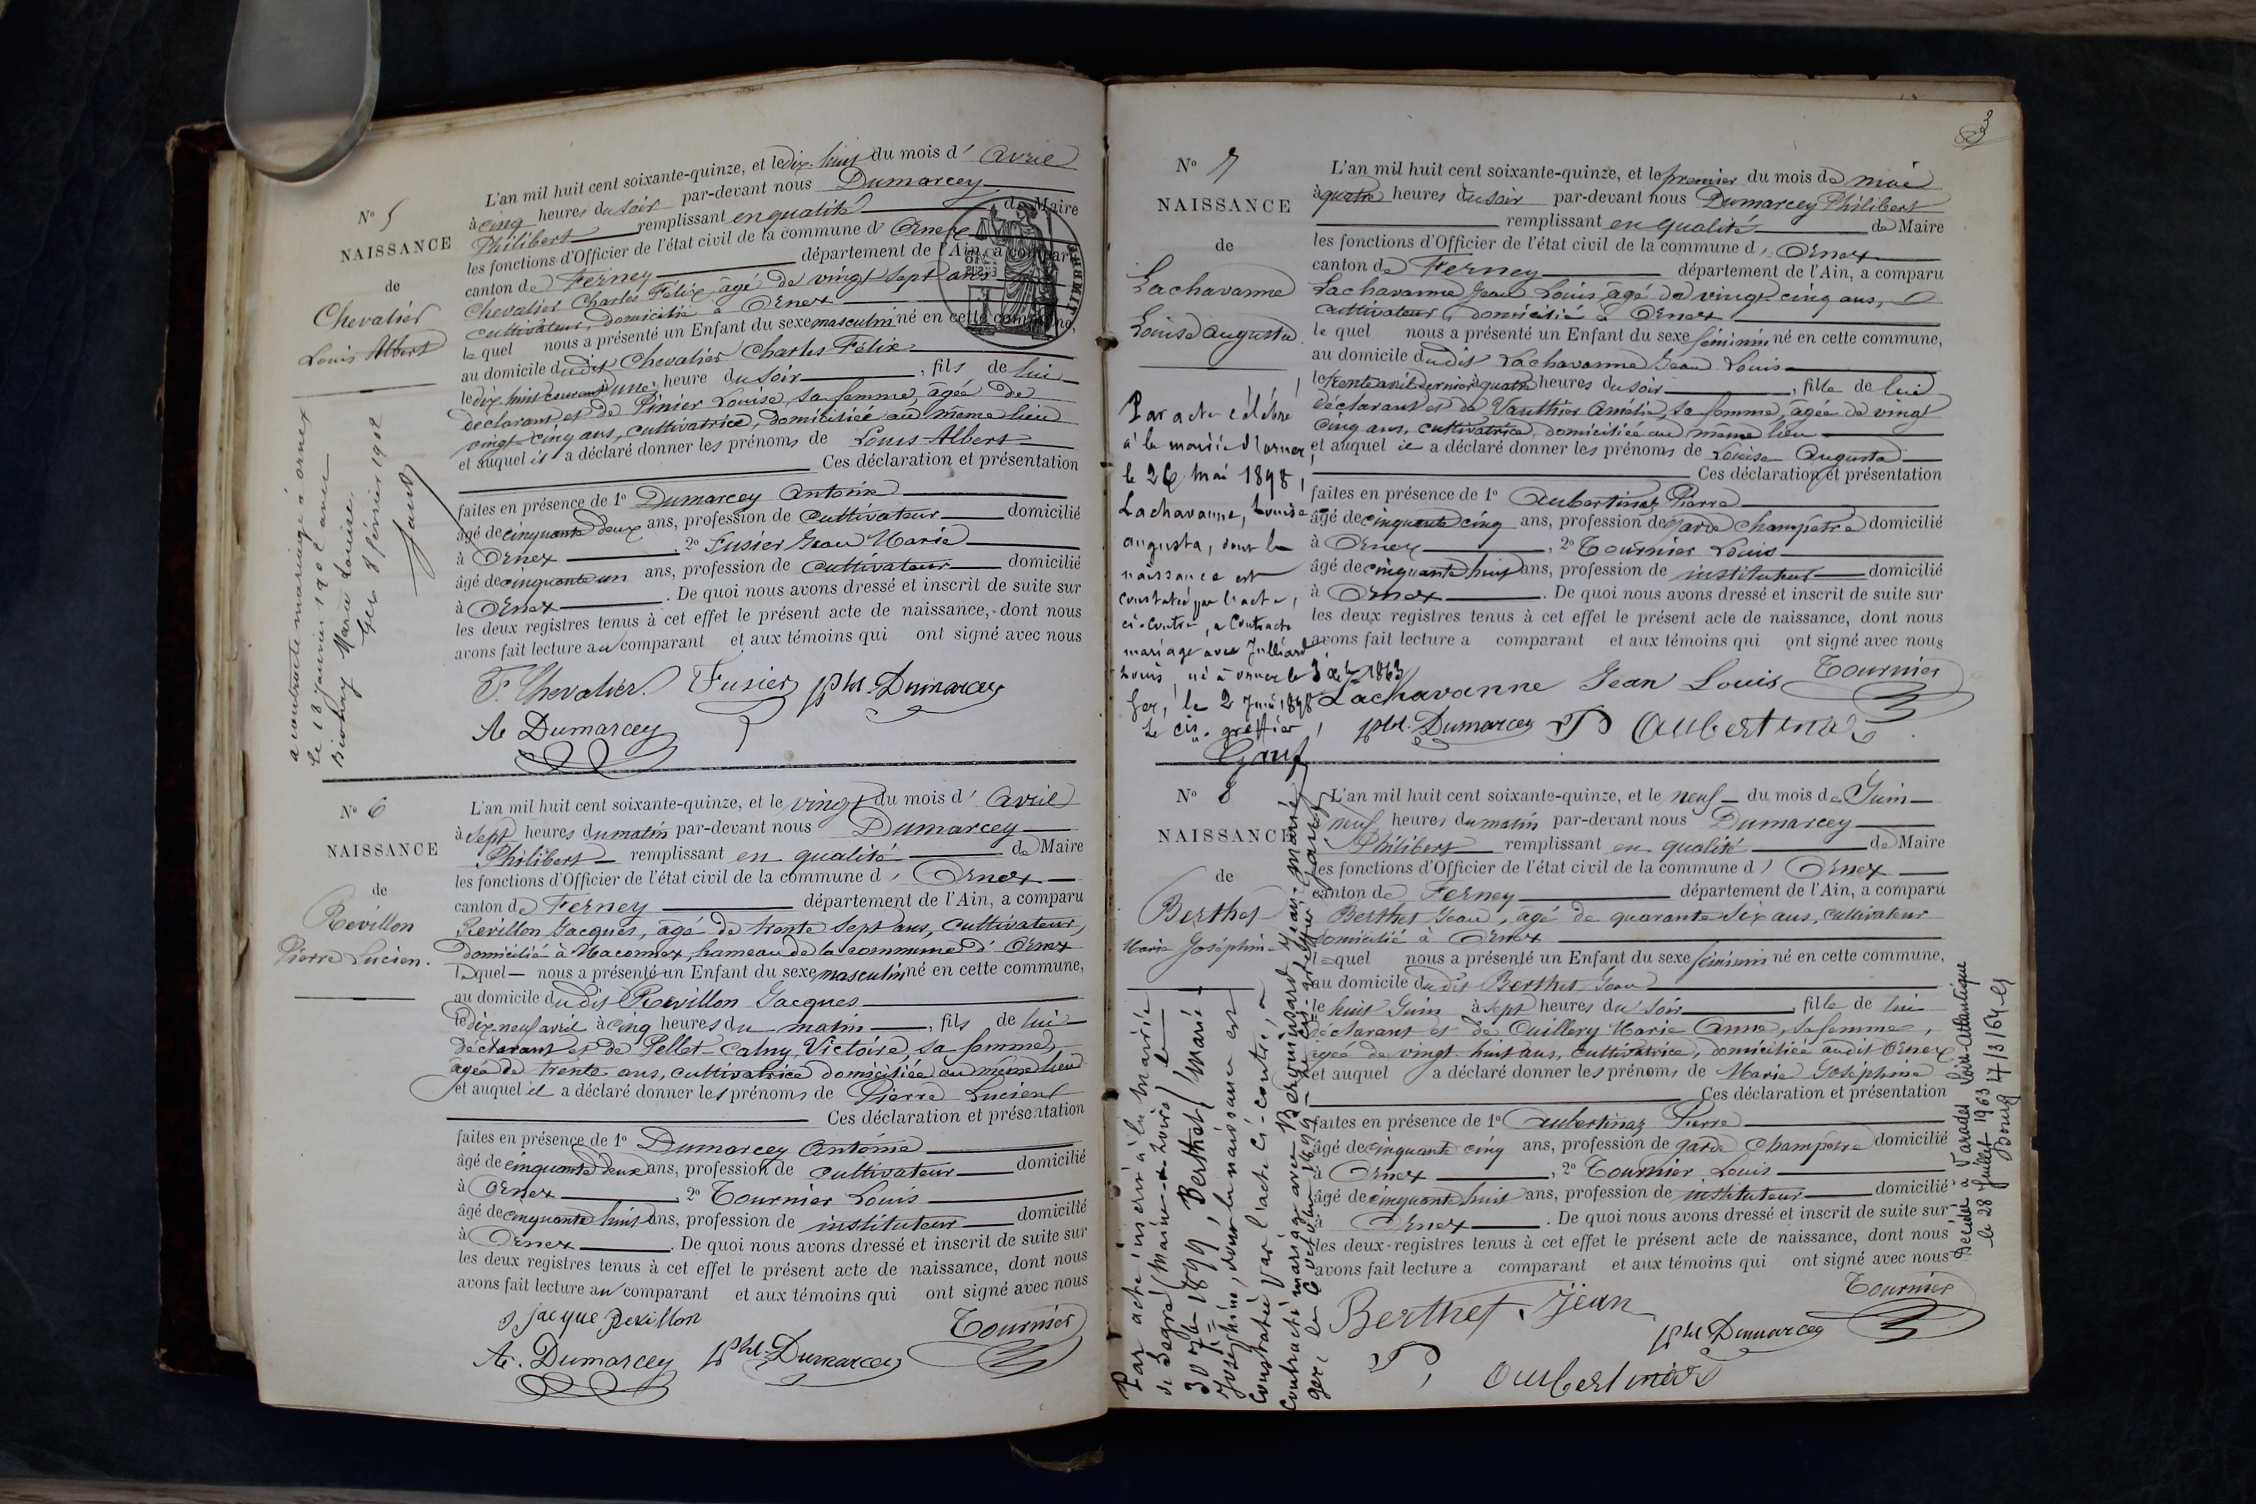 3
83
N° 5
NAISSANCE
de
Chevalier
Louis Albert
a contracté mariage à ornex
le 18 janvier 1902 avec
Marie Louise
Gex 8 février 1902
L'an mil huit cent soixante-quinze, et le dix-huit du mois d' Avril
à cinq heures du soir par-devant nous Dumarcey
Philibert remplissant en qualité de Maire
les fonctions d'Officier de l'état civil de la commune d' Ornex
canton de Ferney département de l'Ain, a comparu
Chevalier Charles Félix, âgé de vingt sept ans
cultivateur, domicilié à Ornex
lequel nous a présenté un Enfant du sexe masculin né en cette commune,
au domicile dudit Chevalier Charles Félix
le dix huit courant à une heure du soir, fils de lui
déclarant et de Pinier Louise, sa femme, âgée de
vingt-cinq ans, cultivatrice, domiciliée au même lieu
et auquel il a déclaré donner les prénoms de Louis-Albert
Ces déclaration et présentation
faites en présence de 1° Dumarcey Antoine
âgé de cinquante deux ans, profession de cultivateur domicilié
à Ornex, 2° Fusier Jean Marie
âgé de cinquante un ans, profession de cultivateur domicilié
à Ornex. De quoi nous avons dressé et inscrit de suite sur
les deux registres tenus à cet effet le présent acte de naissance, dont nous
avons fait lecture au comparant et aux témoins qui ont signé avec nous
F. Chevalier. Fusier Pht. Dumarcey
At Dumarcey
N° 6
NAISSANCE
de
Révillon
Pierre Lucien.
L'an mil huit cent soixante-quinze, et le vingt du mois d' Avril
à sept heures du matin par-devant nous Dumarcey
Philibert remplissant en qualité de Maire
les fonctions d'Officier de l'état civil de la commune d' Ornex
canton de Ferney département de l'Ain, a comparu
Révillon Jacques, âgé de trente sept ans, cultivateur,
domicilié à Maconnex, hameau de la commune d'Ornex
lequel nous a présenté un Enfant du sexe masculin né en cette commune,
au domicile dudit Révillon Jacques
le dix-neuf avril à cinq heures du matin, fils de lui
déclarant et de Pellet-Calny Victoire, sa femme,
âgée de trente ans, cultivatrice domiciliée au même lieu
et auquel il a déclaré donner les prénoms de Pierre Lucient
Ces déclaration et présentation
faites en présence de 1° Dumarcey Antoine
âgé de cinquante deux ans, profession de cultivateur domicilié
à Ornex, 2° Tournier Louis
âgé de cinquante huit ans, profession de instituteur domicilié
à Ornex. De quoi nous avons dressé et inscrit de suite sur
les deux registres tenus à cet effet le présent acte de naissance, dont nous
avons fait lecture au comparant et aux témoins qui ont signé avec nous
jacque revillon Tournier
At. Dumarcey Pht. Dumarcey
N° 7
NAISSANCE
de
Lachavanne
Louise Augusta
Par acte célébré
à la mairie d'ornex,
le 26 mai 1898,
Lachavanne, Louise
augusta, dont la
naissance est
constatée par l'acte,
ci-contre, a contracté
mariage avec Julliard
Louis, né à ornex le 3 1863
Gex, le 2 juin 1898
Le cis. greffier,
L'an mil huit cent soixante-quinze, et le premier du mois de mai
à quatre heures du soir par-devant nous Dumarcey Philibert
remplissant en qualité de Maire
les fonctions d'Officier de l'état civil de la commune d' Ornex
canton de Ferney département de l'Ain, a comparu
Lachavanne Jean Louis, âgé de vingt cinq ans,
cultivateur, domicilié à Ornex
lequel nous a présenté un Enfant du sexe féminin né en cette commune,
au domicile dudit Lachavanne Jean Louis
le trente avril dernier à quatre heures du soir, fille de lui
déclarant et de Vauthier Amélie, sa femme, âgée de vingt
cinq ans, cultivatrice, domiciliée au même lieu
et auquel il a déclaré donner les prénoms de Louise Augusta
Ces déclaration et présentation
faites en présence de 1° Aubertinaz Pierre
âgé de cinquante cinq ans, profession de garde champêtre domicilié
à Ornex, 2° Tournier Louis
âgé de cinquante huit ans, profession de instituteur domicilié
à Ornex. De quoi nous avons dressé et inscrit de suite sur
les deux registres tenus à cet effet le présent acte de naissance, dont nous
avons fait lecture a comparant et aux témoins qui ont signé avec nous
Lachavanne Jean Louis Tournier
Pht. Dumarcey P Aubertinaz
N° 8
NAISSANCE
de
Berthet
Marie Joséphine
Par acte inscrit à la mairie
de Segré (Maine-&-Loire) le
30 7bre 1899, Berthet, Marie
Joséphine, dont la naissance est
constatée par l'acte ci-contre, a
contracté mariage avec Jean-Marie
L'an mil huit cent soixante-quinze, et le neuf du mois de Juin
à neuf heures du matin par-devant nous Dumarcey
Philibert remplissant en qualité de Maire
les fonctions d'Officier de l'état civil de la commune d' Ornex
canton de Ferney département de l'Ain, a comparu
Berthet Jean, âgé de quarante six ans, cultivateur
domicilié à Ornex
lequel nous a présenté un Enfant du sexe féminin né en cette commune,
au domicile dudit Berthet Jean
le huit Juin à sept heures du soir, fille de lui
déclarant et de Cuillery Marie Anne, sa femme,
âgée de vingt-huit ans, cultivatrice, domiciliée audit Ornex
et auquel a déclaré donner les prénoms de Marie Joséphine
Ces déclaration et présentation
faites en présence de 1° Aubertinaz Pierre
âgé de cinquante cinq ans, profession de garde champêtre domicilié
à Ornex, 2° Tournier Louis
âgé de cinquante huit ans, profession de instituteur domicilié
à Ornex. De quoi nous avons dressé et inscrit de suite sur
les deux registres tenus à cet effet le présent acte de naissance, dont nous
avons fait lecture a comparant et aux témoins qui ont signé avec nous
Berthet Jean Tournier
Pht. Dumarcey
P Aubertinaz
Décédée à Varades Loire-Atlantique
le 28 Juillet 1963